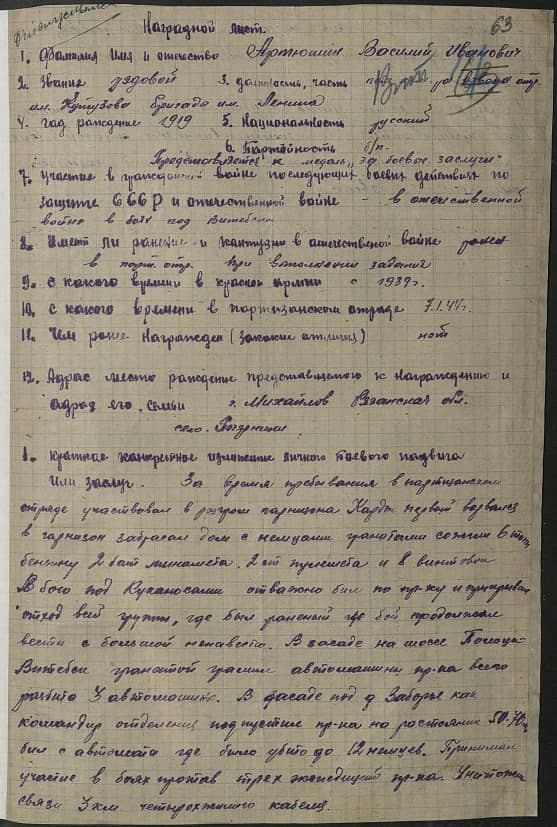 63
Наградной лист.
1. Фамилия Имя и отчество Артюшин Василий Иванович
2. Звание рядовой 3. должность, часть отр.
им. Кутузова бригада им. Ленина
4. год рождение 1919 5. Национальность русский
6. Партейность б/п.
Представляется к медаль „За боевые заслуги"
7. Участие в гражданской войне последующих боевых действиях по
защите СССР и отечественной войне – в отечественной
войне в боях под Витебском
8. Имеет ли ранение и контузии в отечественой войне ранен
в парт. отр. при выполнении задания
9. с какого времени в красной армии с 1939г.
10. с какого времени в партизанском отряде 7.1.44г.
11. Чем ранее награжден (закакие отличия) нет
12. Адрес место рождение представляемого к награждению и
адрес его семьи г. Михайлов Рязанская обл.
село
1. краткое конкретное изложение личного боевого подвига
или заслуг. За время пребывания в партизанском
отряде участвовал в разгром гарнизона первый ворвался
в гарнизон забрасал дом с немцами гранатами сожгли 6 тонн
бензину 2 бат миномета. 2 ст пулемета и 8 винтовок
В бою под отважно бил по пр-ку и прикрывал
отход всей группы, где был раненый но бой продолжал
вести с большой ненавесть. В засаде на шоссе Полоцк-
Витебск гранатой автомашины пр-ка всего
разбито 3 автомашины. В засаде под д Заборье как
командир отделения подпустив пр-ка на растояние 50-70м
бил с автомата где было убито до 12 немцев. Принимал
участие в боях против трех экспедиций пр-ка. Уничтожил
связи 3 км четырехжилого кабеля.